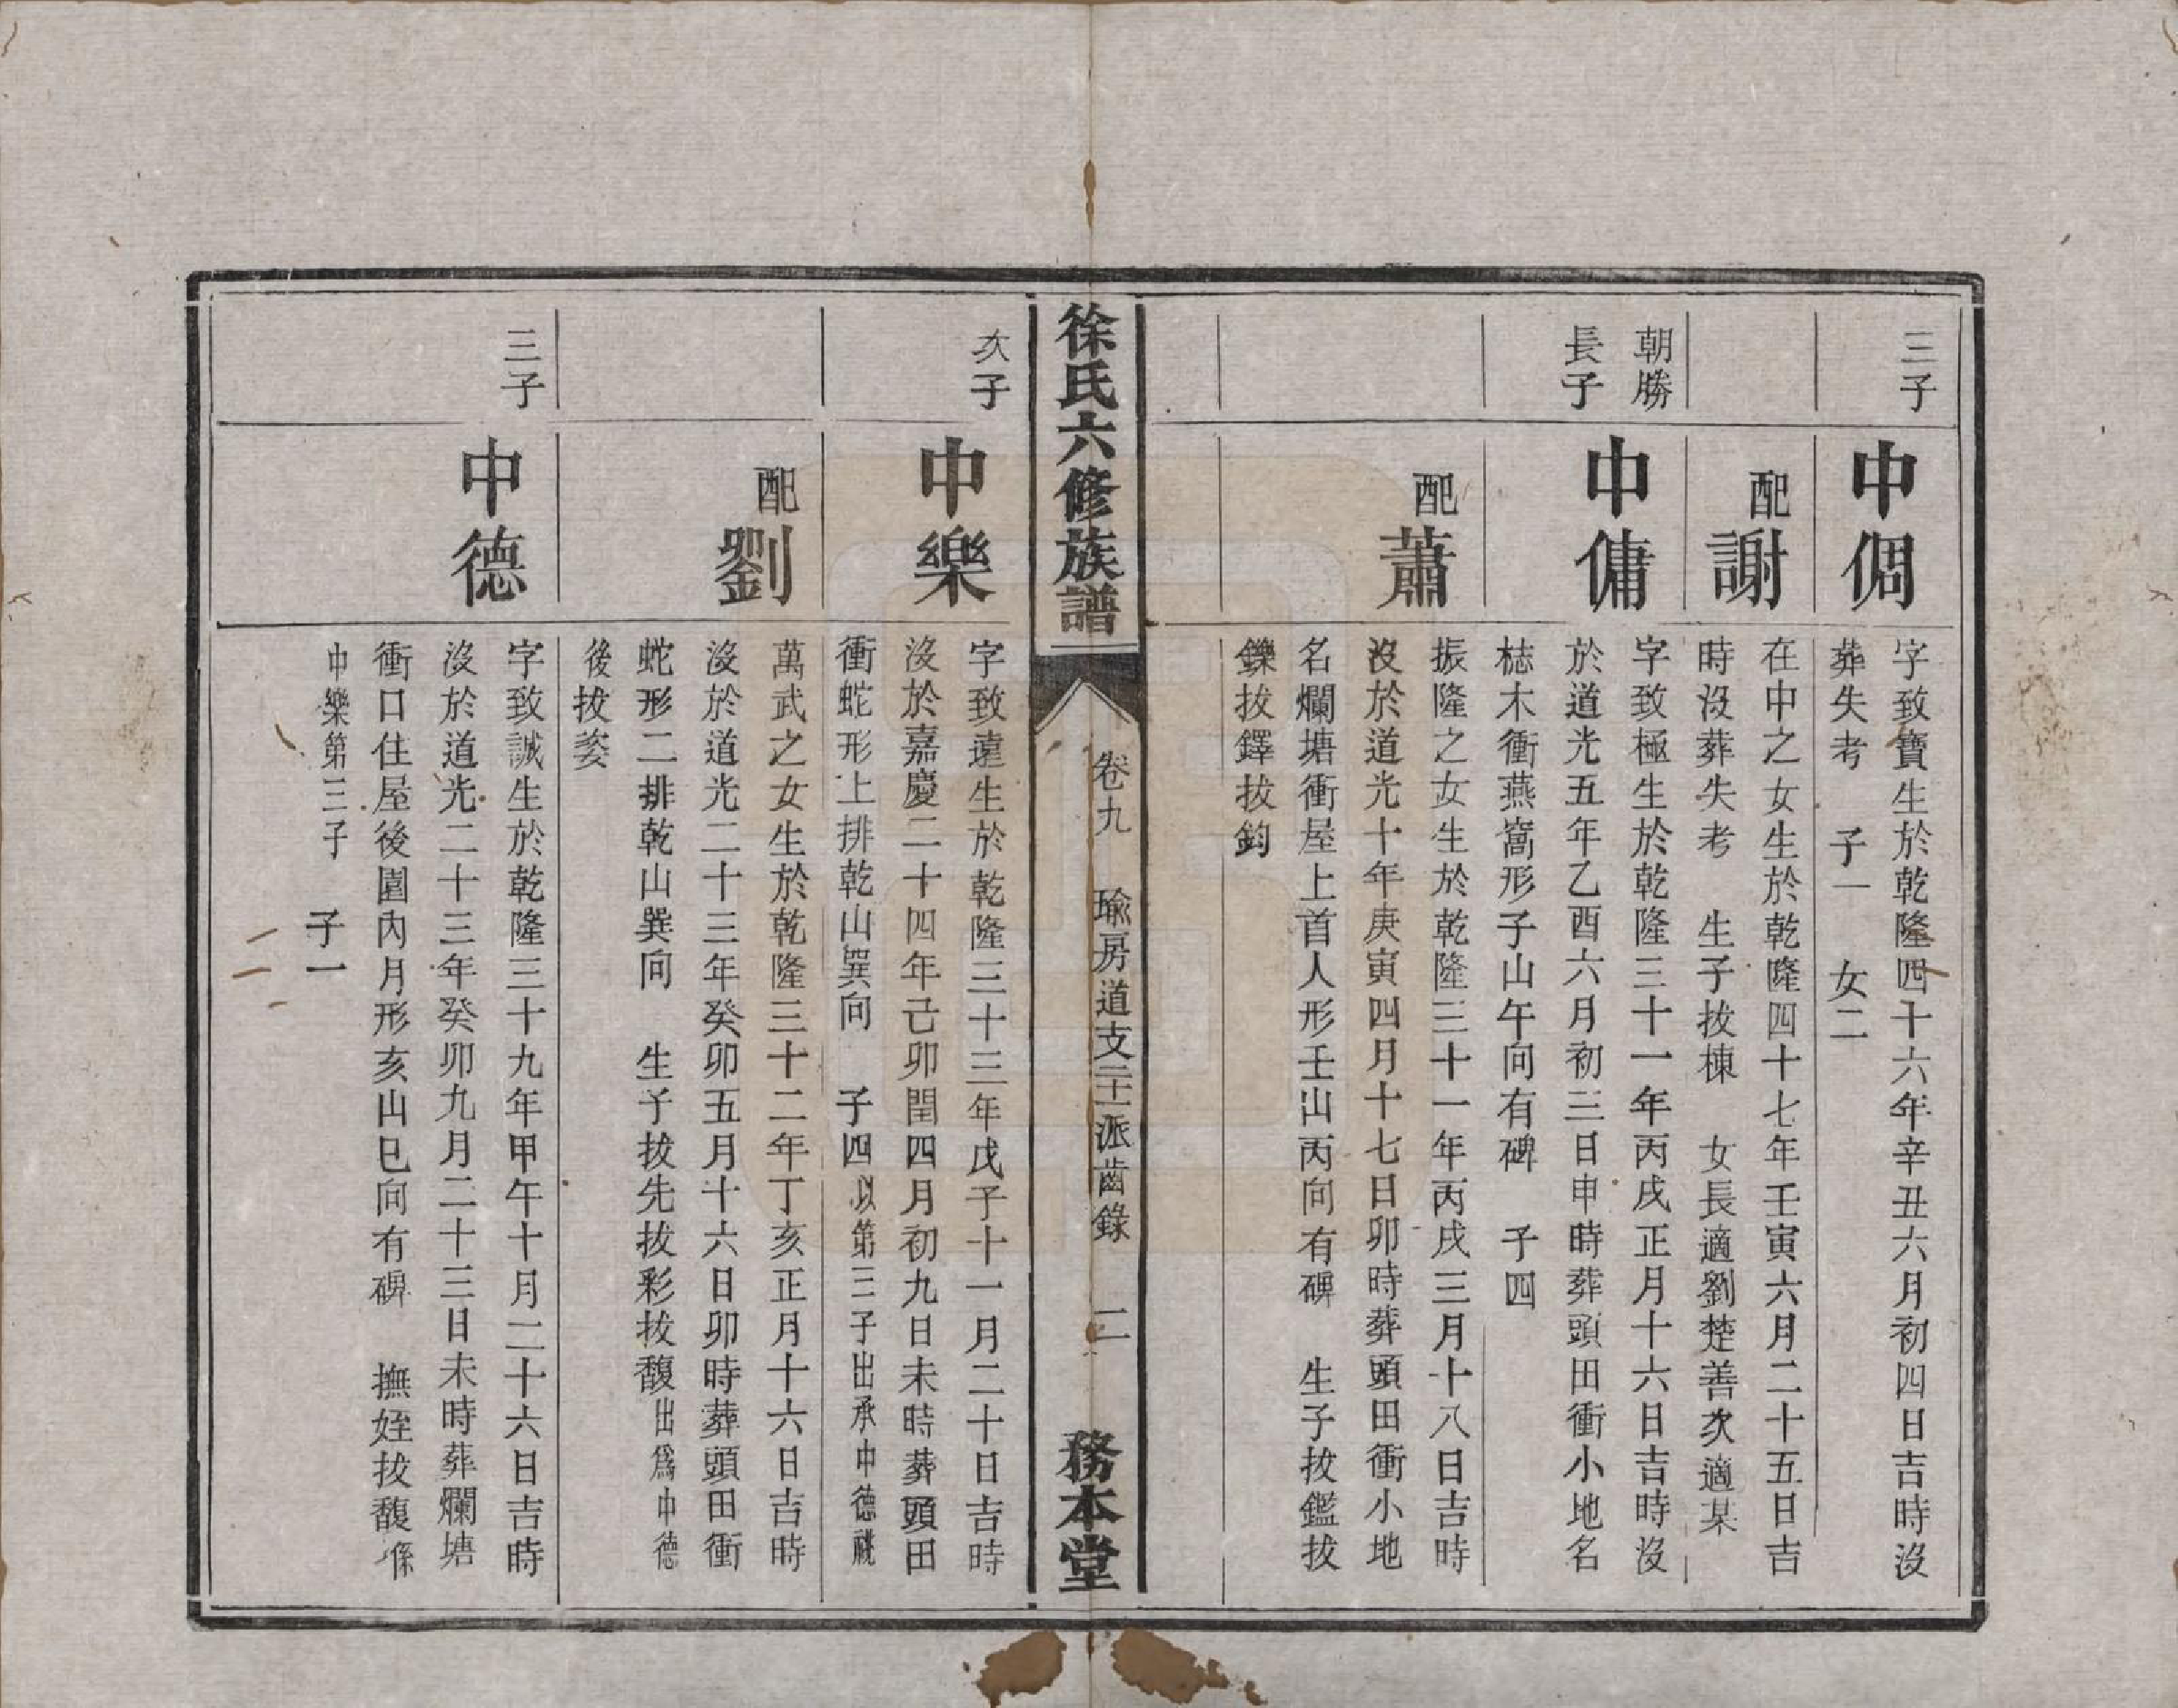 三子
中倜
字致寶生於乾隆四十六年辛丑六月初四日吉時沒
葬失考　子一　女二
配謝
在中之女生於乾隆四十七年壬寅六月二十五日吉
時沒葬失考　生子拔棟　女長適劉楚善次適某
朝勝
長子
中傭
字致極生於乾隆三十一年丙戌正月十六日吉時沒
於道光五年乙酉六月初三日申時葬頭田衝小地名
梽木衝燕窩形子山午向有碑　子四
配蕭
振隆之女生於乾隆三十一年丙戌三月十八日吉時
沒於道光十年庚寅四月十七日卯時葬頭田衝小地
名爛塘衝屋上首人形壬山丙向有碑　生子拔鑑拔
鑠拔鐸拔鈞
徐氏六修族譜
卷九　瑜房道支二十一派齒錄　二
務本堂
次子
中樂
字致遠生於乾隆三十三年戊子十一月二十日吉時
沒於嘉慶二十四年己卯閏四月初九日未時葬頭田
衝蛇形上排乾山巽向　子四以第三子出承中德祧
配劉
萬武之女生於乾隆三十二年丁亥正月十六日吉時
沒於道光二十三年癸卯五月十六日卯時葬頭田衝
蛇形二排乾山巽向　生子拔先拔彩拔馥出爲中德
後拔姿
三子
中德
字致誠生於乾隆三十九年甲午十月二十六日吉時
沒於道光二十三年癸卯九月二十三日未時葬爛塘
衝口住屋後園內月形亥山巳向有碑　撫姪拔馥係
中樂第三子　子一